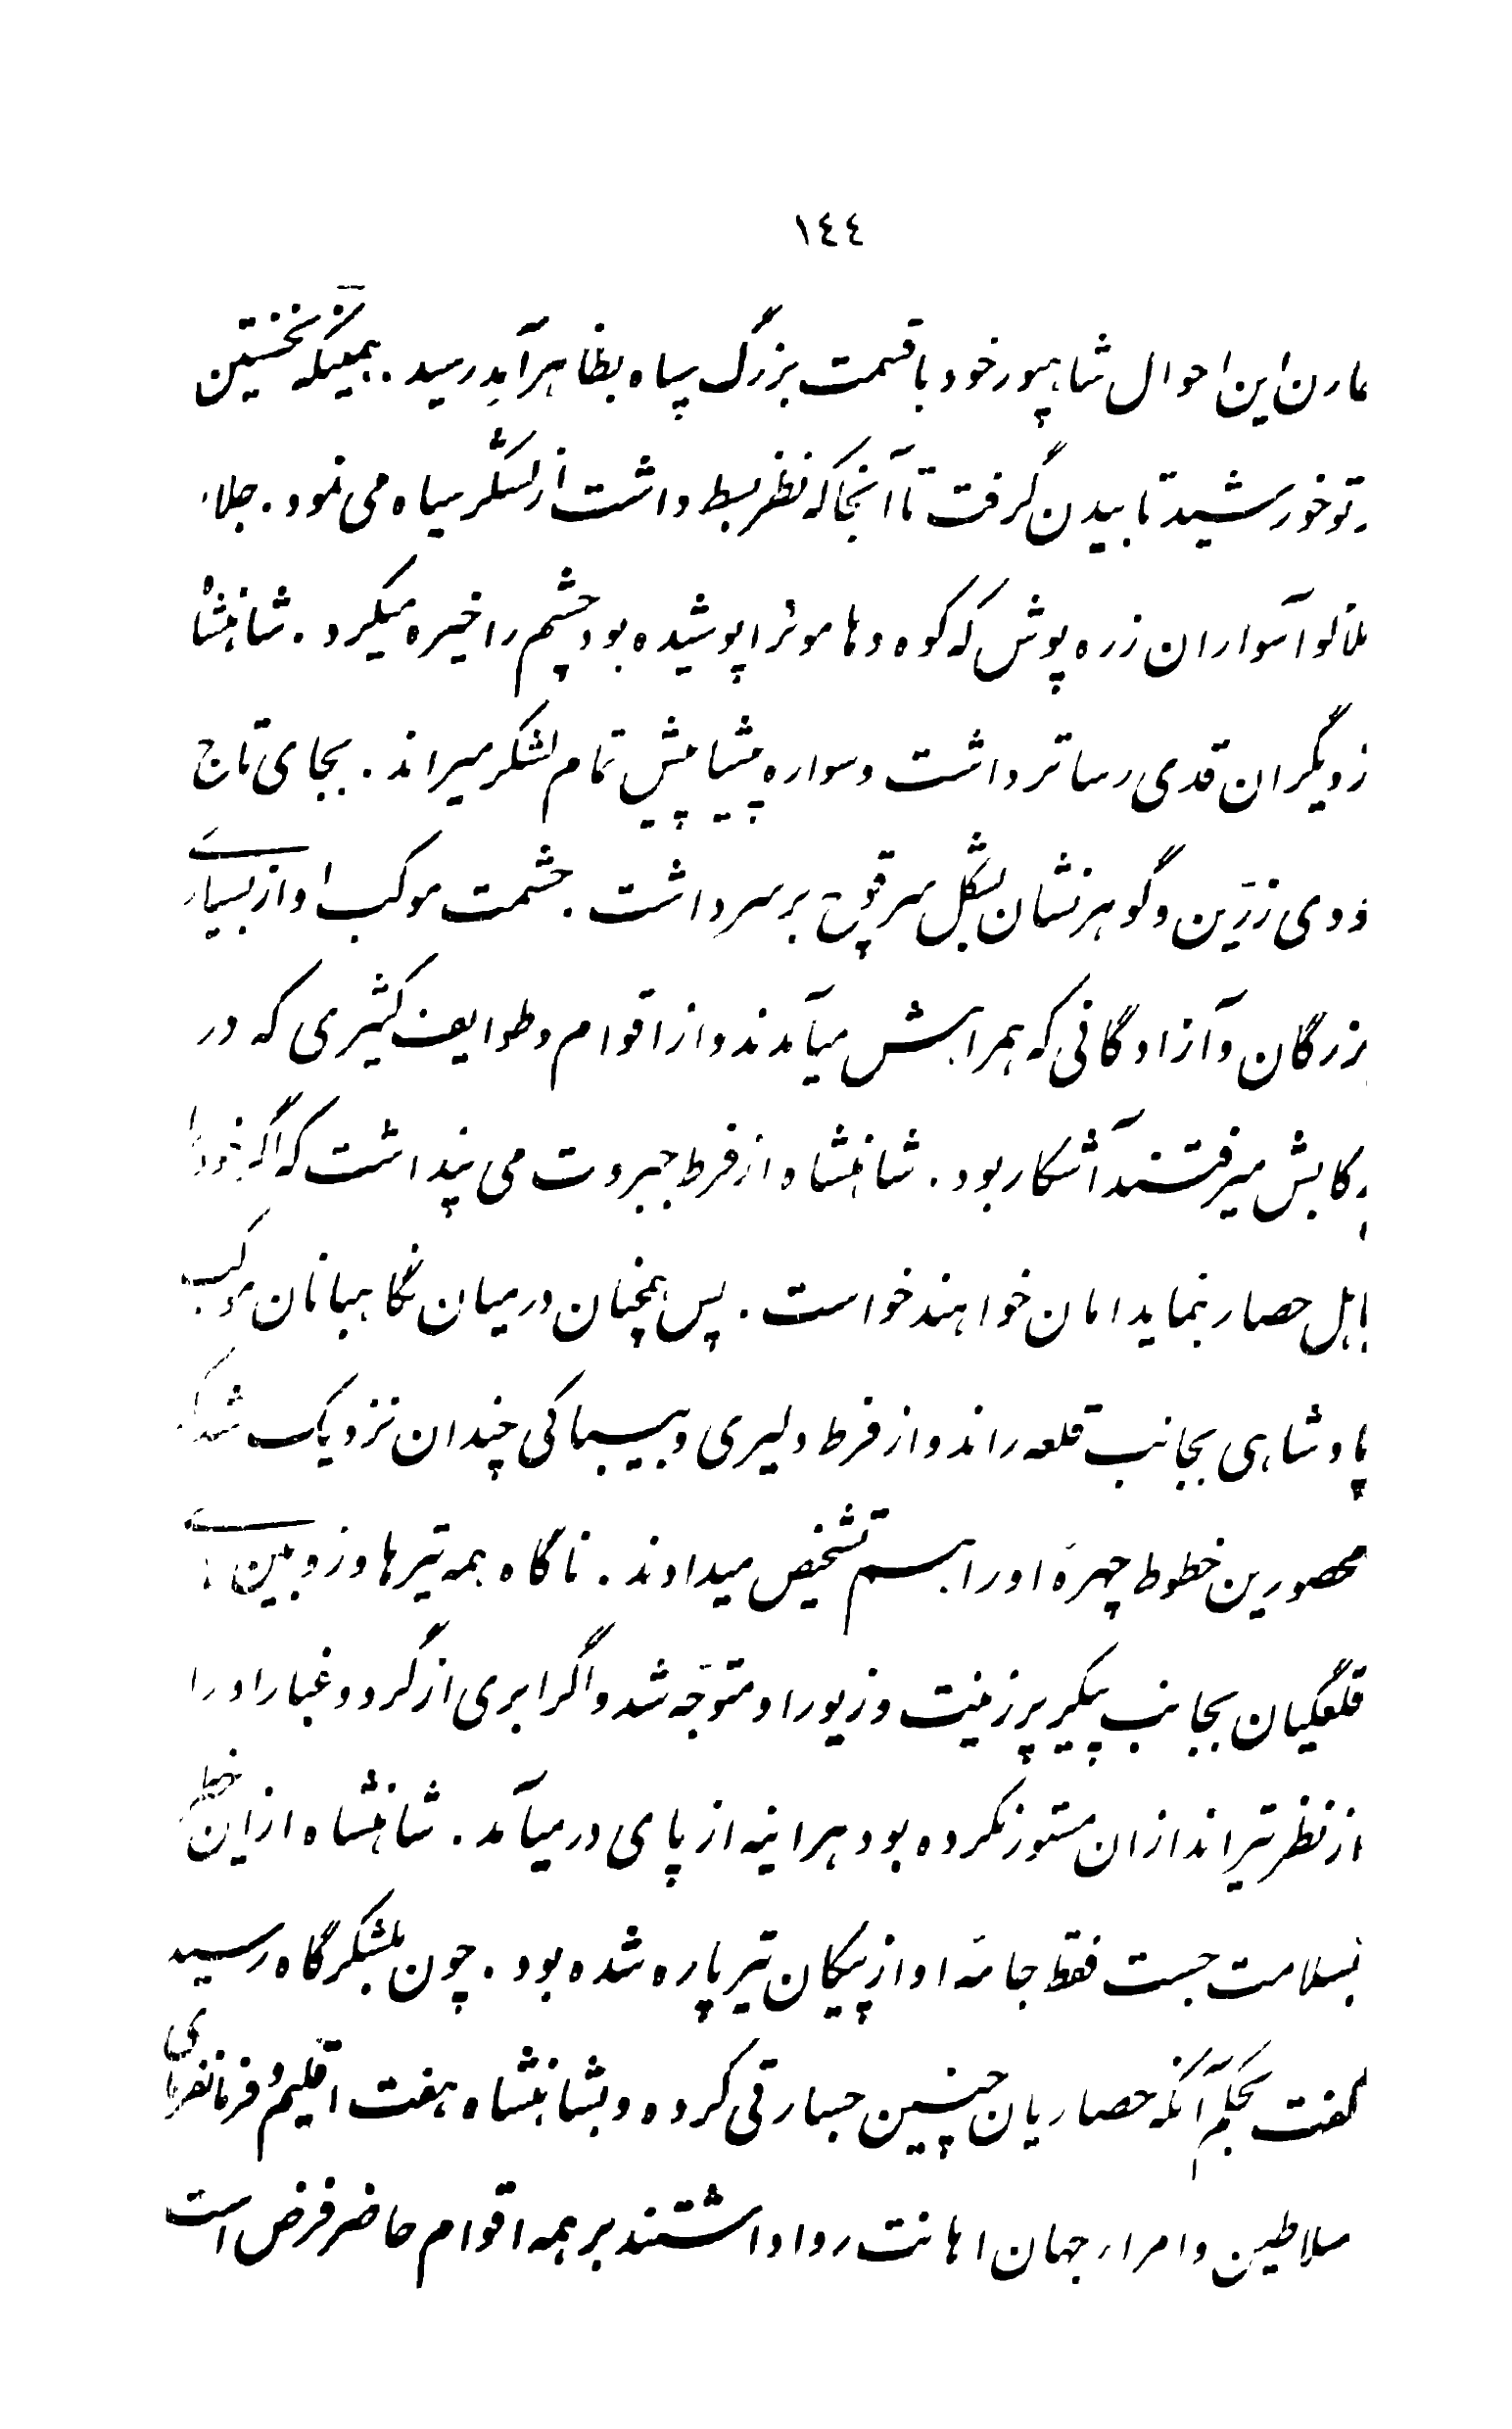 ١٤٤
مارن این احوال شاهپور خود با قسمت بزرگ سپاه بظاهر آمِد رسید. همینکه نخستین
رتو خورشید تابیدن گرفت تا آنجا که نظر بسط داشت از لشگر سیاه می نمود. جلاء
آسواران زره پوش که کوه و هامونرا پوشیده بود چشم را خیره میکرد. شاهنشاه
ز دیگران قدی رساتر داشت و سواره پیشاپیش تمام لشکر میراند. بجای تاج
خودی زرّین و گوهر نشان بشکل سر قوچ بر سر داشت. حشمت موکب او از بسیاری
بزرگان و آزادگانی که همراهش میآمدند و از اقوام و طوایف کثیری که در
رکابش میرفتند آشکار بود. شاهنشاه از فرط جبروت می پنداشت که اگر خود را
باهل حصار بنماید امان خواهند خواست. پس همچنان در میان نگاهبانان موکب
پادشاهی بجانب قلعه راند و از فرط دلیری و بیباکی چندان نزدیک شد که
محصورین خطوط چهرهٔ او را تشخیص میدادند. ناگاه همه تیرها و زوبین
قلعگیان بجانب پیکر پر زینت و زیور او متوجّه شد و اگر ابری از گرد و غبار او را
از نظر تیراندازان مستور نکرده بود هراینه از پای در میآمد. شاهنشاه از این خطر
بسلامت جست فقط جامهٔ او از پیکان تیر پاره شده بود. چون بلشکرگاه رسید
گفت بحکم آنکه حصاریان چنین جسارتی کرده و بشاهنشاه هفت اقلیم و فرمانفرمای
سلاطین و امراء جهان اهانت روا داشتند بر همه اقوام حاضر فرض است